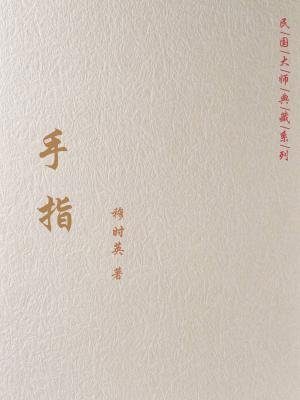 民国大师典藏系列
手指
穆时英 著